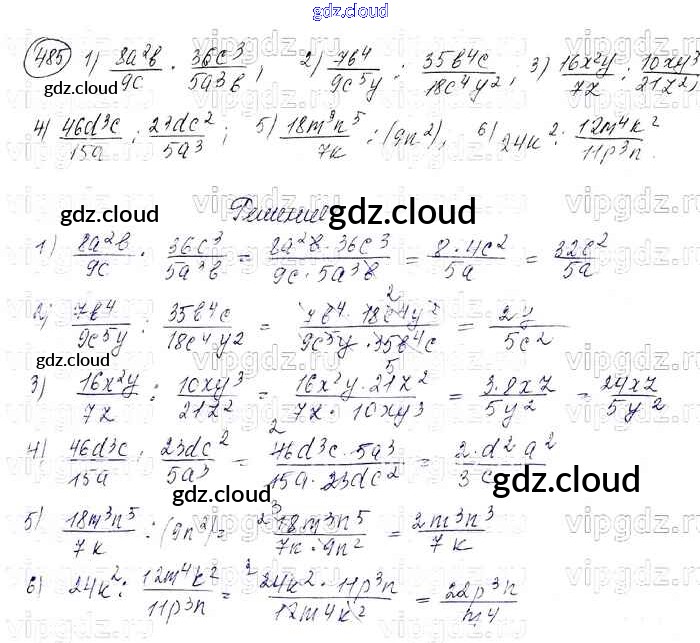 gdz.cloud
485 1) 8a²b/9c · 36c³/5a³b; 2) 7b⁴/9c⁵y : 35b⁴c/18c⁴y²; 3) 16x²y/7z : 10xy³/21z²;
gdz.cloud
4) 46d³c/15a : 23dc²/5a³; 5) 18m³n⁵/7k : (9n²); 6) 24k² : 12m⁴k²/11p³n.
gdz.cloud Решение gdz.cloud gdz.cloud
1) 8a²b/9c · 36c³/5a³b = 8a²b · 36c³/9c · 5a³b = 8 · 4c²/5a = 32c²/5a
2) 7b⁴/9c⁵y : 35b⁴c/18c⁴y² = 7b⁴ · 18c⁴y²/9c⁵y · 35b⁴c = 2y/5c²
gdz.cloud
3) 16x²y/7z : 10xy³/21z² = 16x²y · 21z²/7z · 10xy³ = 3·8xz/5y² = 24xz/5y²
4) 46d³c/15a : 23dc²/5a³ = 46d³c · 5a³/15a · 23dc² = 2·d²a²/3c
gdz.cloud gdz.cloud
5) 18m³n⁵/7k : (9n²) = 18m³n⁵/7k · 9n² = 2m³n³/7k
6) 24k² : 12m⁴k²/11p³n = 24k² · 11p³n/12m⁴k² = 22p³n/m⁴
gdz.cloud